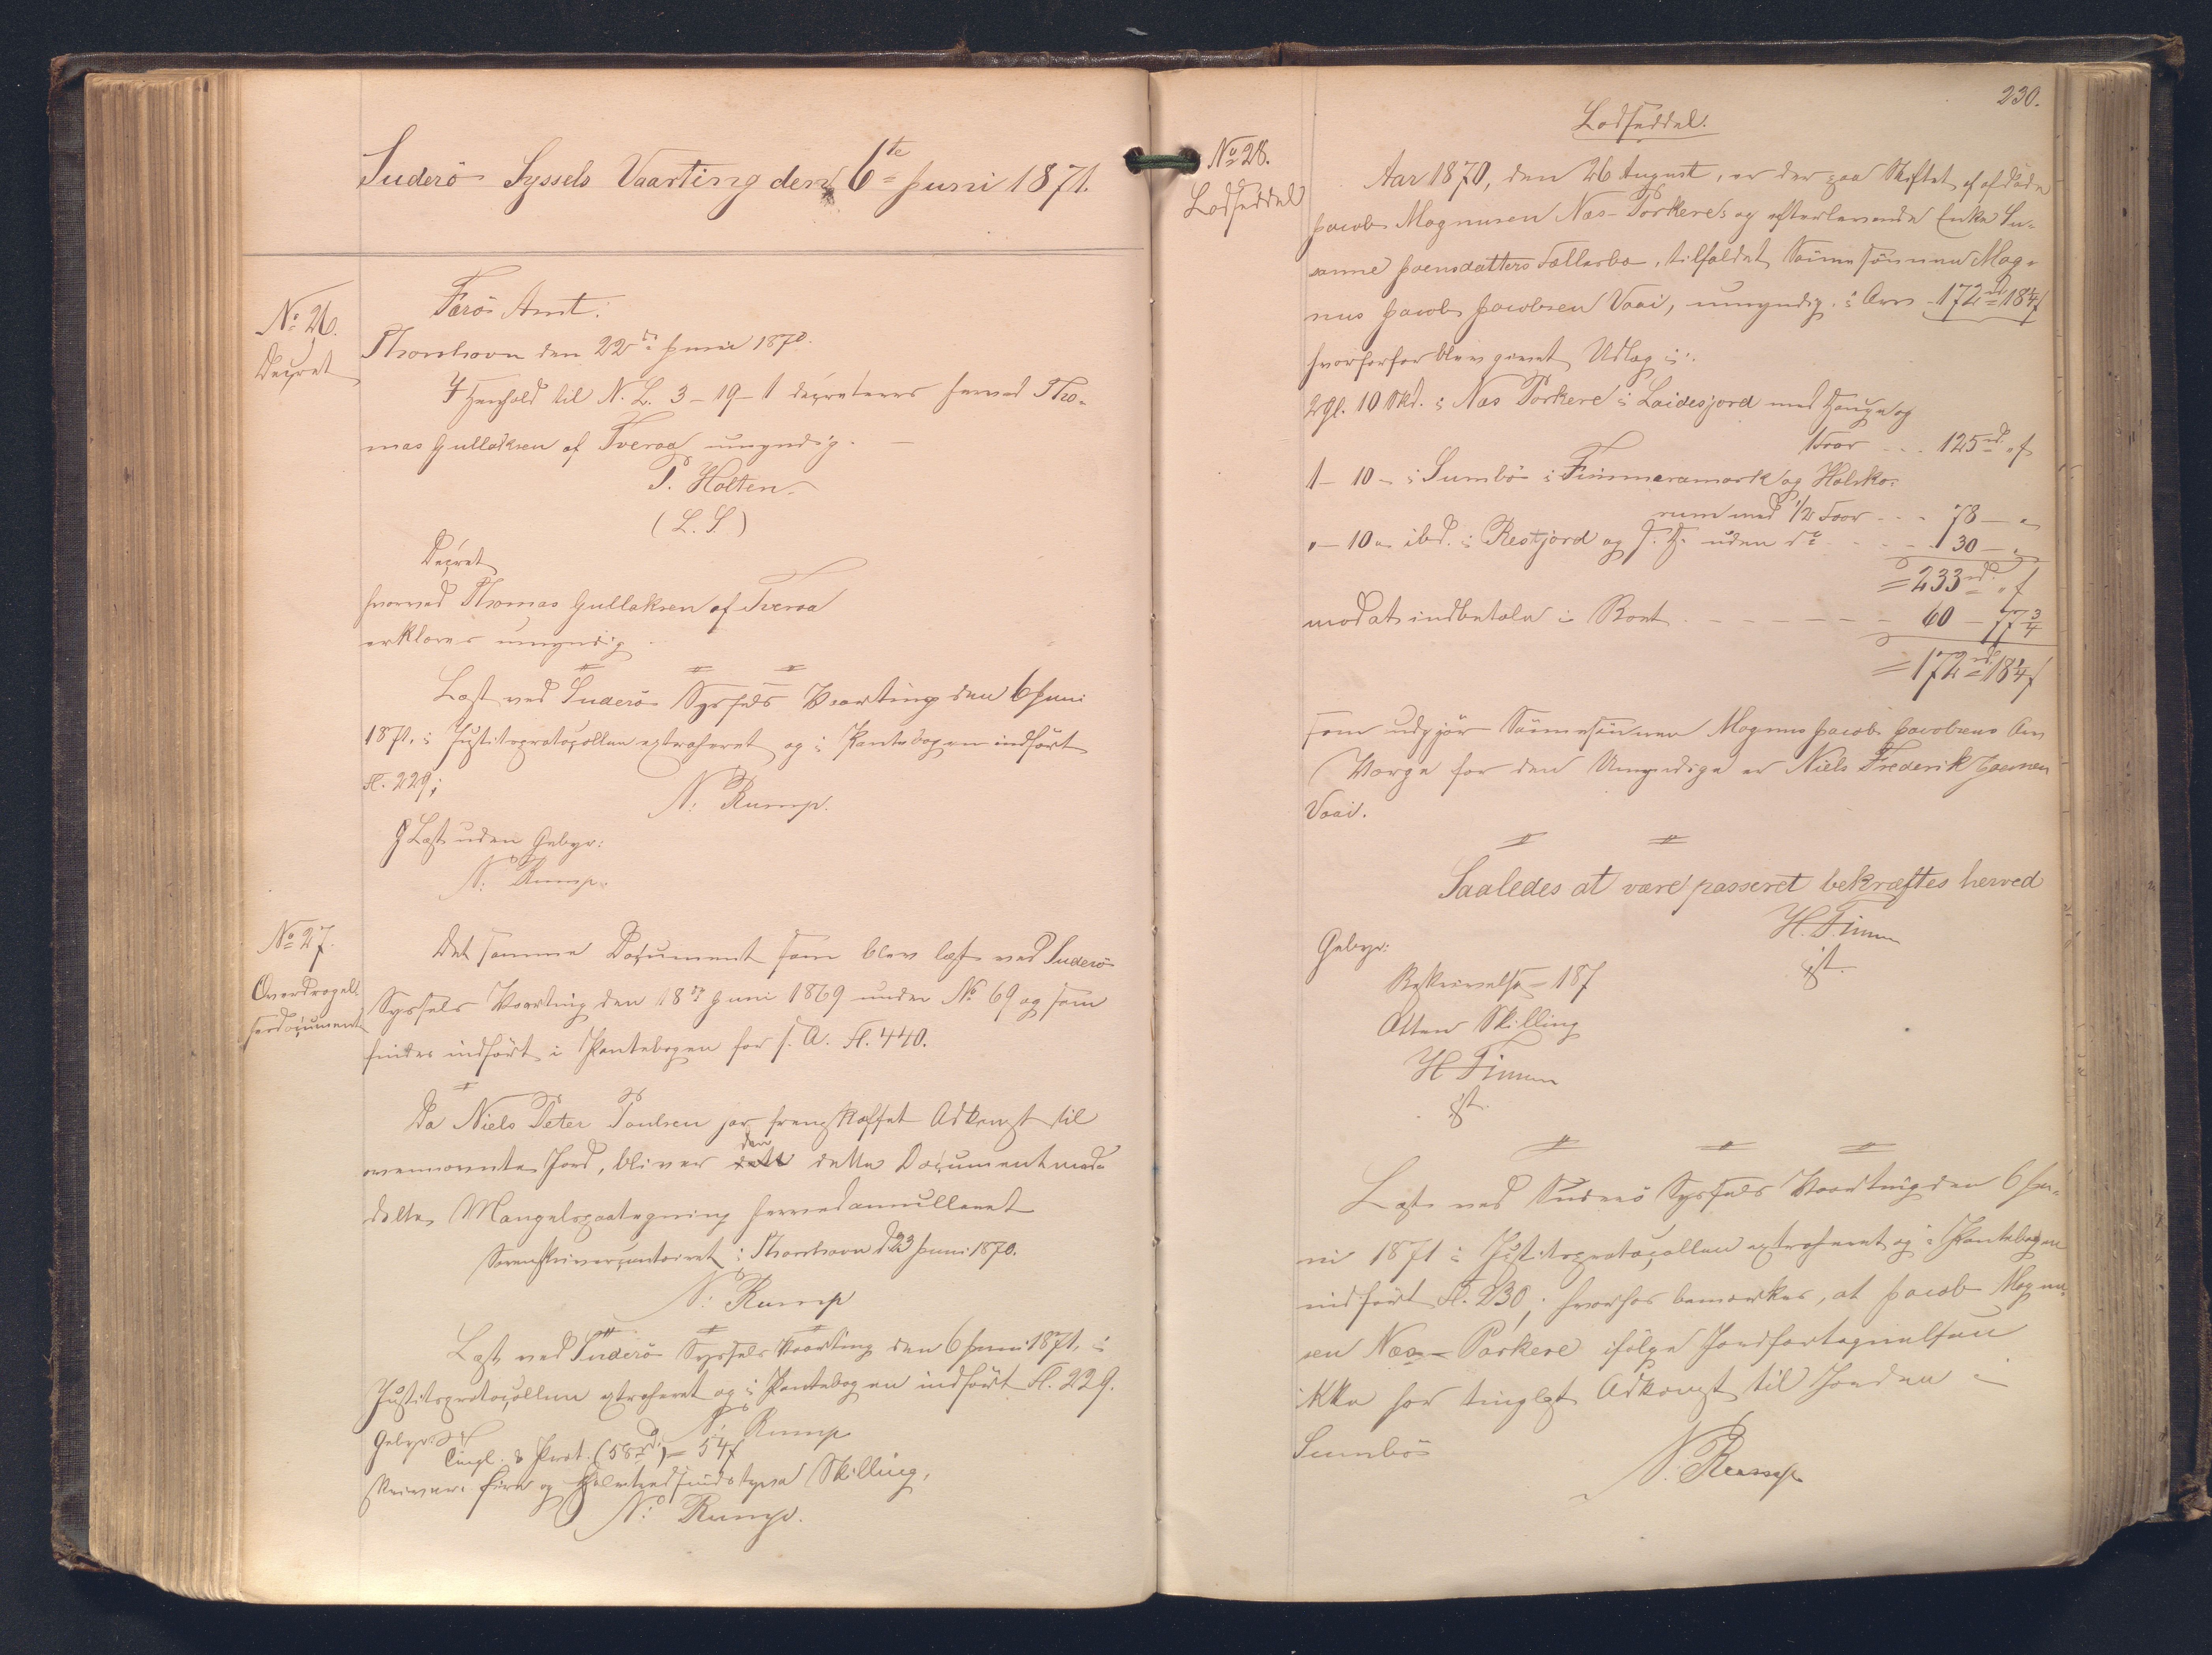 Suderö Syssels Vaarting den 6te Juni 1871.
No. 26.
Decret
Færö Amt.
Thorshavn den 22de Juni 1870.
I Henhold til N. L. 3-19-1 decreteres herved Tho-
mas Gullaksen af Tveraa umyndig. —
P. Holten
(L. S.)
Decret
hvorved Thomas Gullaksen af Tveraa
erklæres umyndig
Læst ved Suderö Syssels Vaarting den 6 Juni
1871, i Justitsprotocollen extraheret og i Pantebogen indført
Fl. 229;
N. Rump.
Læst uden Gebyr:
N. Rump.
No 27.
Overdragel-
sesdocument
Det samme Document som blev læst ved Suderö
Syssels Vaarting den 18de Juni 1869 under No 69 og som
findes indført i Pantebogen for s. A. Fl. 440.
Da Niels Peter Poulsen har fremskaffet Adkomst til
ovennævnte Jord, bliver den dette Document med-
delte Mangelspaategning herved annulleret
Sorenskrivercontoiret i Thorshavn d. 23 Juni 1870.
N. Rump
Læst ved Suderö Syssels Vaarting den 6 Juni 1871, i
Justitsprotocollen extraheret og i Pantebogen indført Fl. 229.
N. Rump
Gebyr:
Tingl. & Prot. (58 rd.) - 54 s
skriver fire og Halvtredsindstyve Skilling,
N. Rump.
230.
No 28.
Lodseddel
Lodseddel.
Aar 1870, den 26 August, er der paa Skiftet af afdøde
Jacob Magnusen Næs-Porkeres og efterlevende Enke Su-
sanne Joensdatters Fællesbo, tilfaldet Sønnesønnen Mag-
nus Jacob Jacobsen Vaai, umyndig i Arv 172 rd 18 1/4 s
hvorfor blev gjort Udlæg i:
2 Gl. 10 Skd. i Næs Porkere i Laidesjord med Hauge og
1 Foer - - - 125 rd. „ s
1 - 10 - i Sumbö i Fimmeramork og Holsko-
rum med 1/2 Foer - - - 78 - „
„ - 10 - ibd. i Restjord og J. H. uden do - - - 30 - „
= 233 rd. „ s
mod at indbetale i Boet - - - - - - 60 - 77 3/4
= 172 rd 18 1/4 s
som udgjør Sønnesønnen Magnus Jacob Jacobsens Arv
Værge for den Umyndige er Niels Frederik Joensen
Vaai.
Saaledes at være passeret bekræftes herved
H. Finsen
cst.
Gebyr:
Beskrivelse - 18 s
Atten Skilling
H Finsen
cst.
Læst ved Suderö Syssels Vaarting den 6 Ju-
ni 1871 i Justitsprotocollen extraheret og i Pantebogen
indført Fl. 230; hvorhos bemærkes, at Jacob Magnu-
sen Næs-Porkere ifølge Jordfortegnelsen
ikke har tinglæst Adkomst til Jorden i
Sumbö
N. Rump